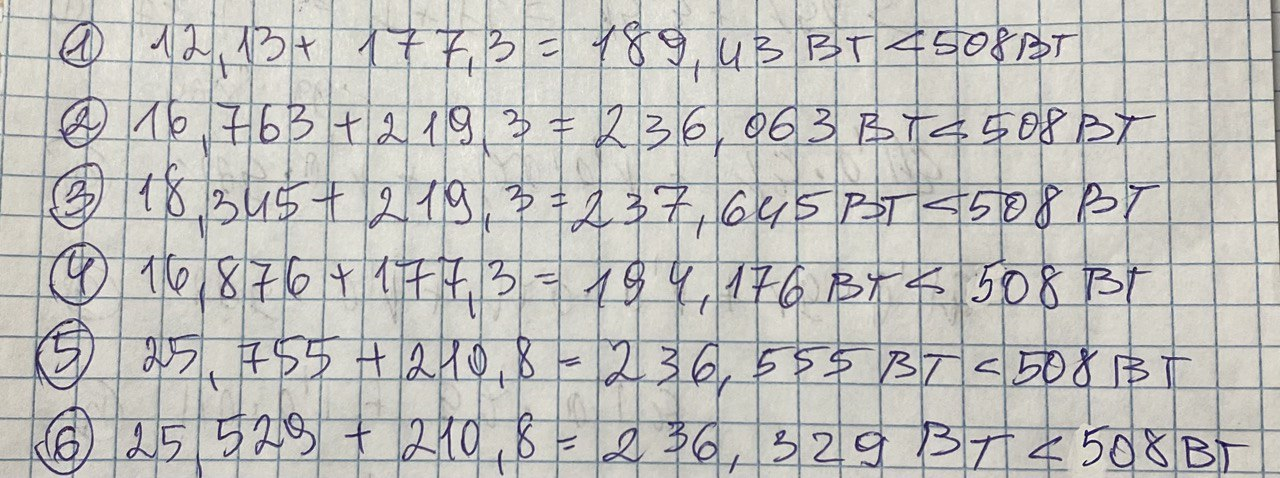 ① 12,13 + 177,3 = 189,43 Вт < 508 Вт
② 16,763 + 219,3 = 236,063 Вт < 508 Вт
③ 18,345 + 219,3 = 237,645 Вт < 508 Вт
④ 16,876 + 177,3 = 194,176 Вт < 508 Вт
⑤ 25,755 + 210,8 = 236,555 Вт < 508 Вт
⑥ 25,529 + 210,8 = 236,329 Вт < 508 Вт